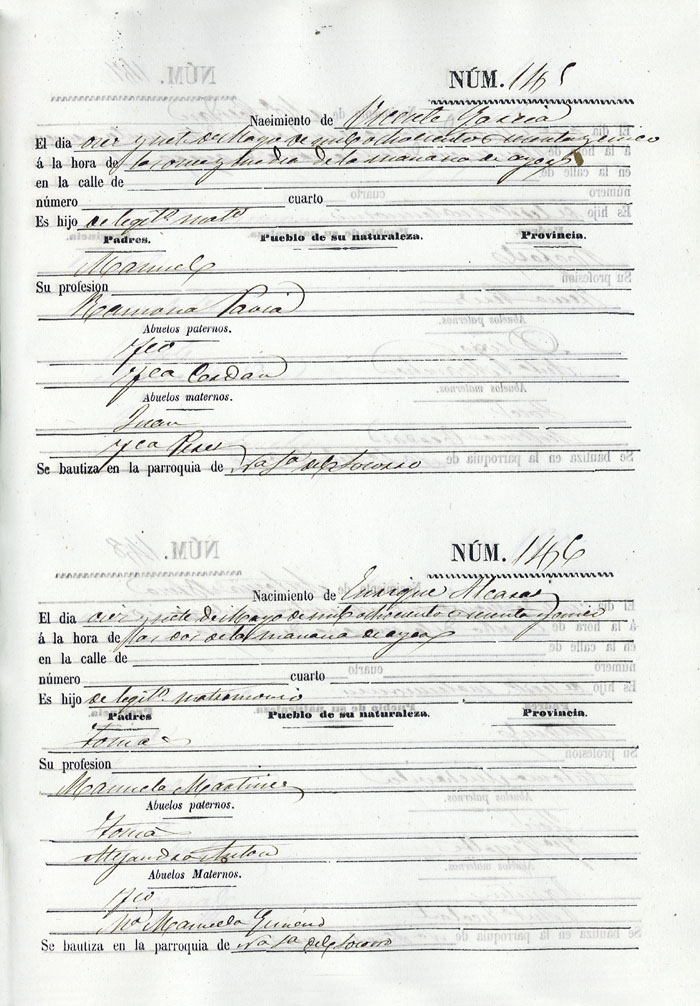 NÚM. 145
Nacimiento de Vicente Garcia
El dia diez y siete de Mayo de mil ochocientos y cinco
á la hora de las once y media de la mañana de ayer
en la calle de
número cuarto
Es hijo de legit.º mat.º
Padres. Pueblo de su naturaleza. Provincia.
Manuel
Su profesion
Ramona Pavia
Abuelos paternos.
Fco
Fca Cordan
Abuelos maternos.
Juan
Fca Perez
Se bautiza en la parroquia de Nª Sª del Socorro
NÚM. 146
Nacimiento de Enrique Alcaraz
El dia diez y siete de Mayo de mil ochocientos y cinco
á la hora de las dos de la mañana de ayer
en la calle de
número cuarto
Es hijo de legit.º matrimonio
Padres Pueblo de su naturaleza. Provincia.
Tomas
Su profesion
Manuela Martinez
Abuelos paternos.
Tomas
Alejandra Anton
Abuelos Maternos.
Fco
Mª Manuela Gimeno
Se bautiza en la parroquia de Nª Sª del Socorro